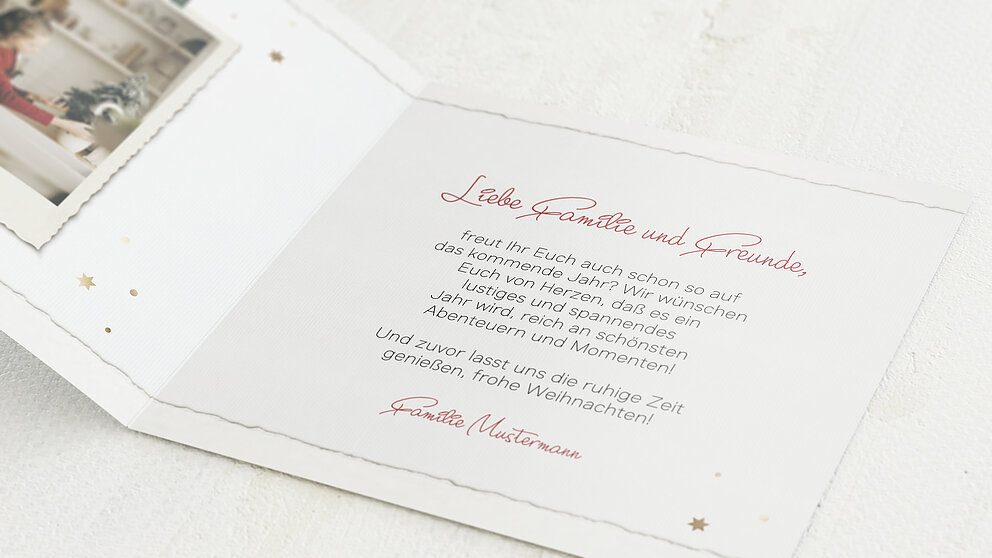 Liebe Familie und Freunde,
freut Ihr Euch auch schon so auf
das kommende Jahr? Wir wünschen
Euch von Herzen, daß es ein
lustiges und spannendes
Jahr wird, reich an schönsten
Abenteuern und Momenten!
Und zuvor lasst uns die ruhige Zeit
genießen, frohe Weihnachten!
Familie Mustermann